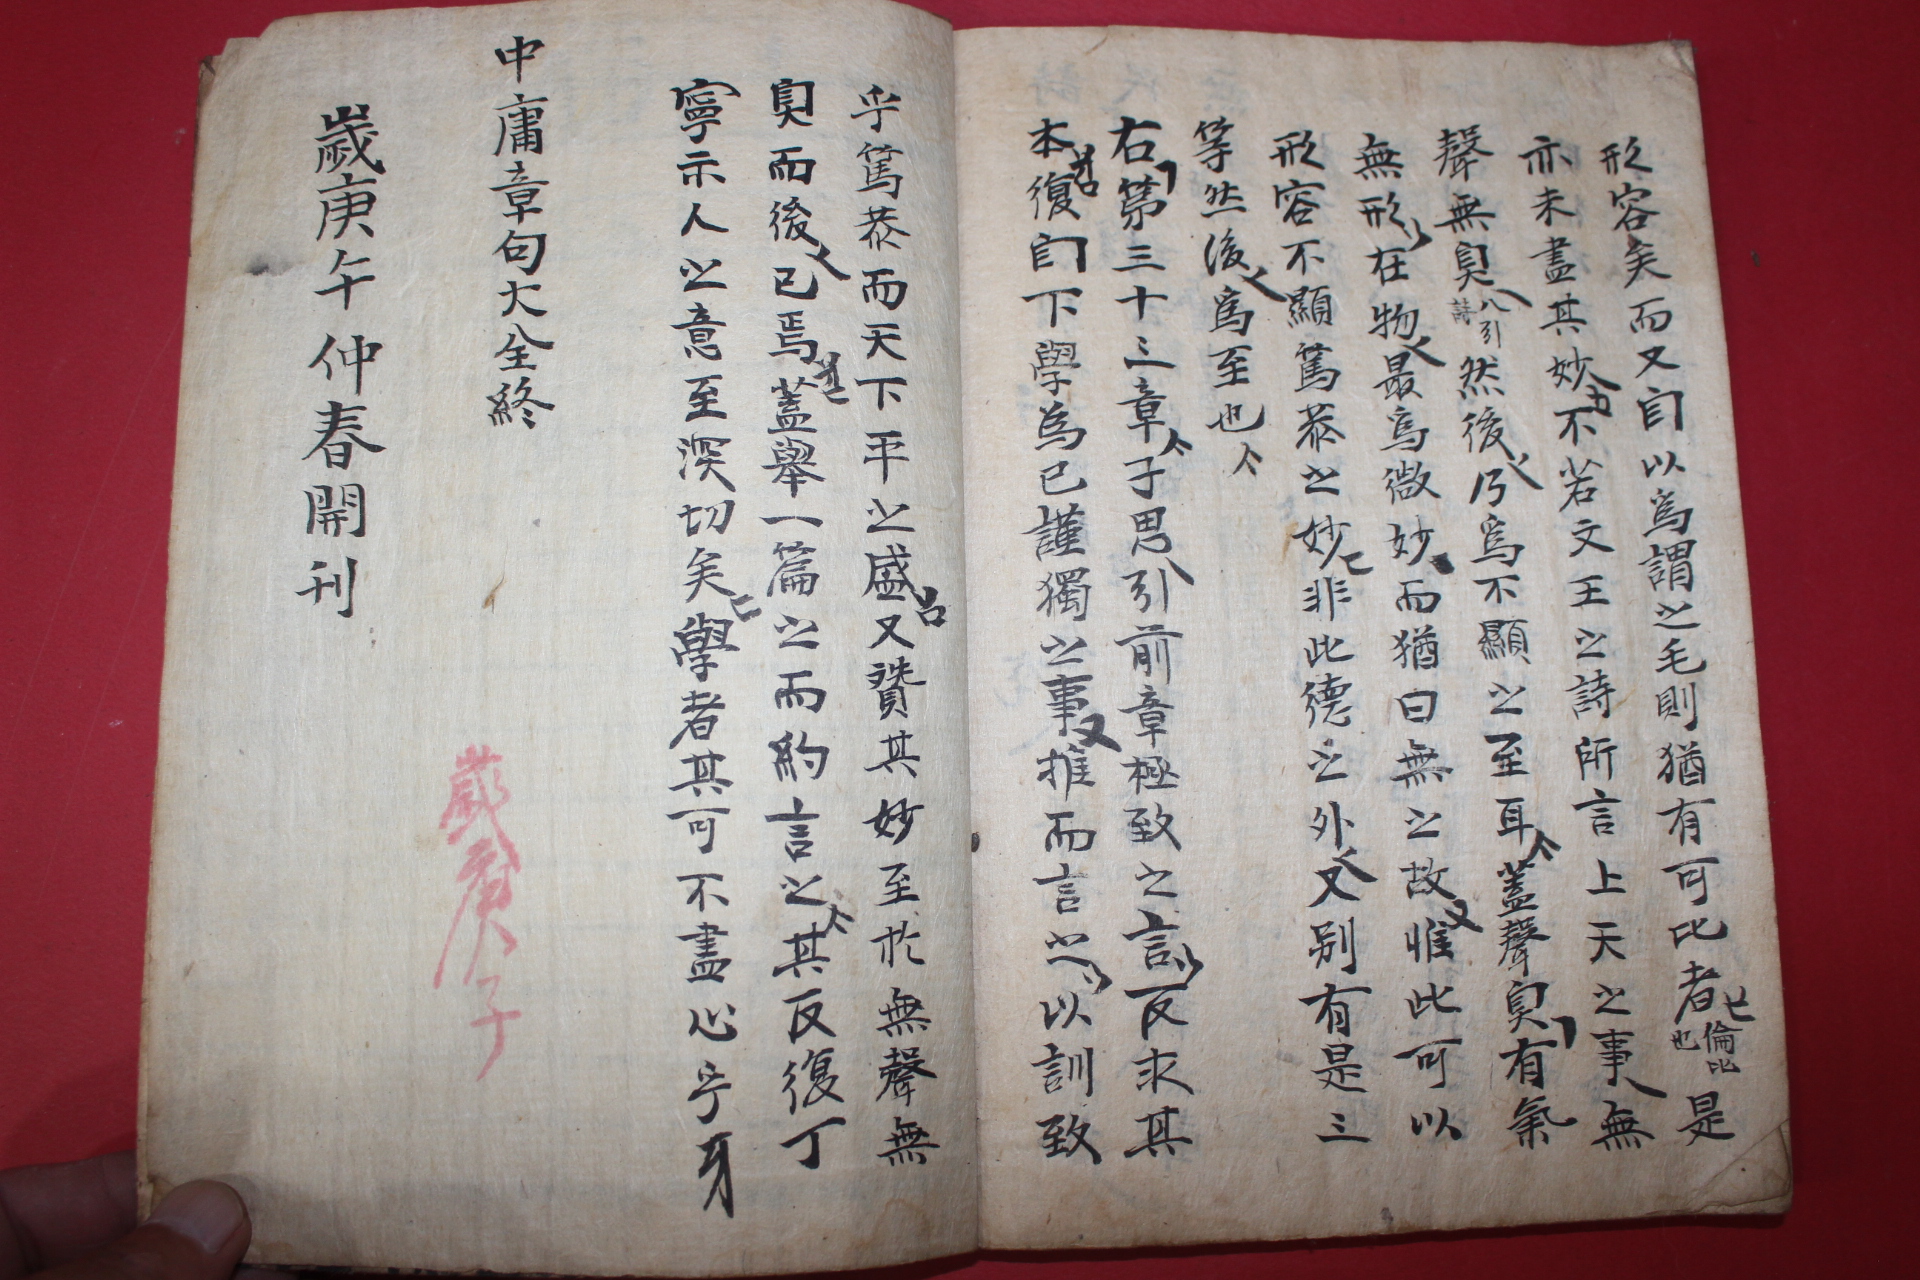 形容矣而又自以爲謂之毛則猶有可比者倫比也是
亦未盡其妙不若文王之詩所言上天之事無
聲無臭八引詩然後乃爲不顯之至耳蓋聲臭有氣
無形在物最爲微妙而猶曰無之故惟此可以
形容不顯篤恭之妙非此德之外又別有是三
等然後爲至也
右第三十三章子思引前章極致之言反求其
本復自下學爲己謹獨之事推而言之以訓致
乎篤恭而天下平之盛又贊其妙至於無聲無
臭而後已焉蓋擧一篇之而約言之其反復丁
寧示人之意至深切矣學者其可不盡心乎
中庸章句大全終
歲庚午仲春開刊